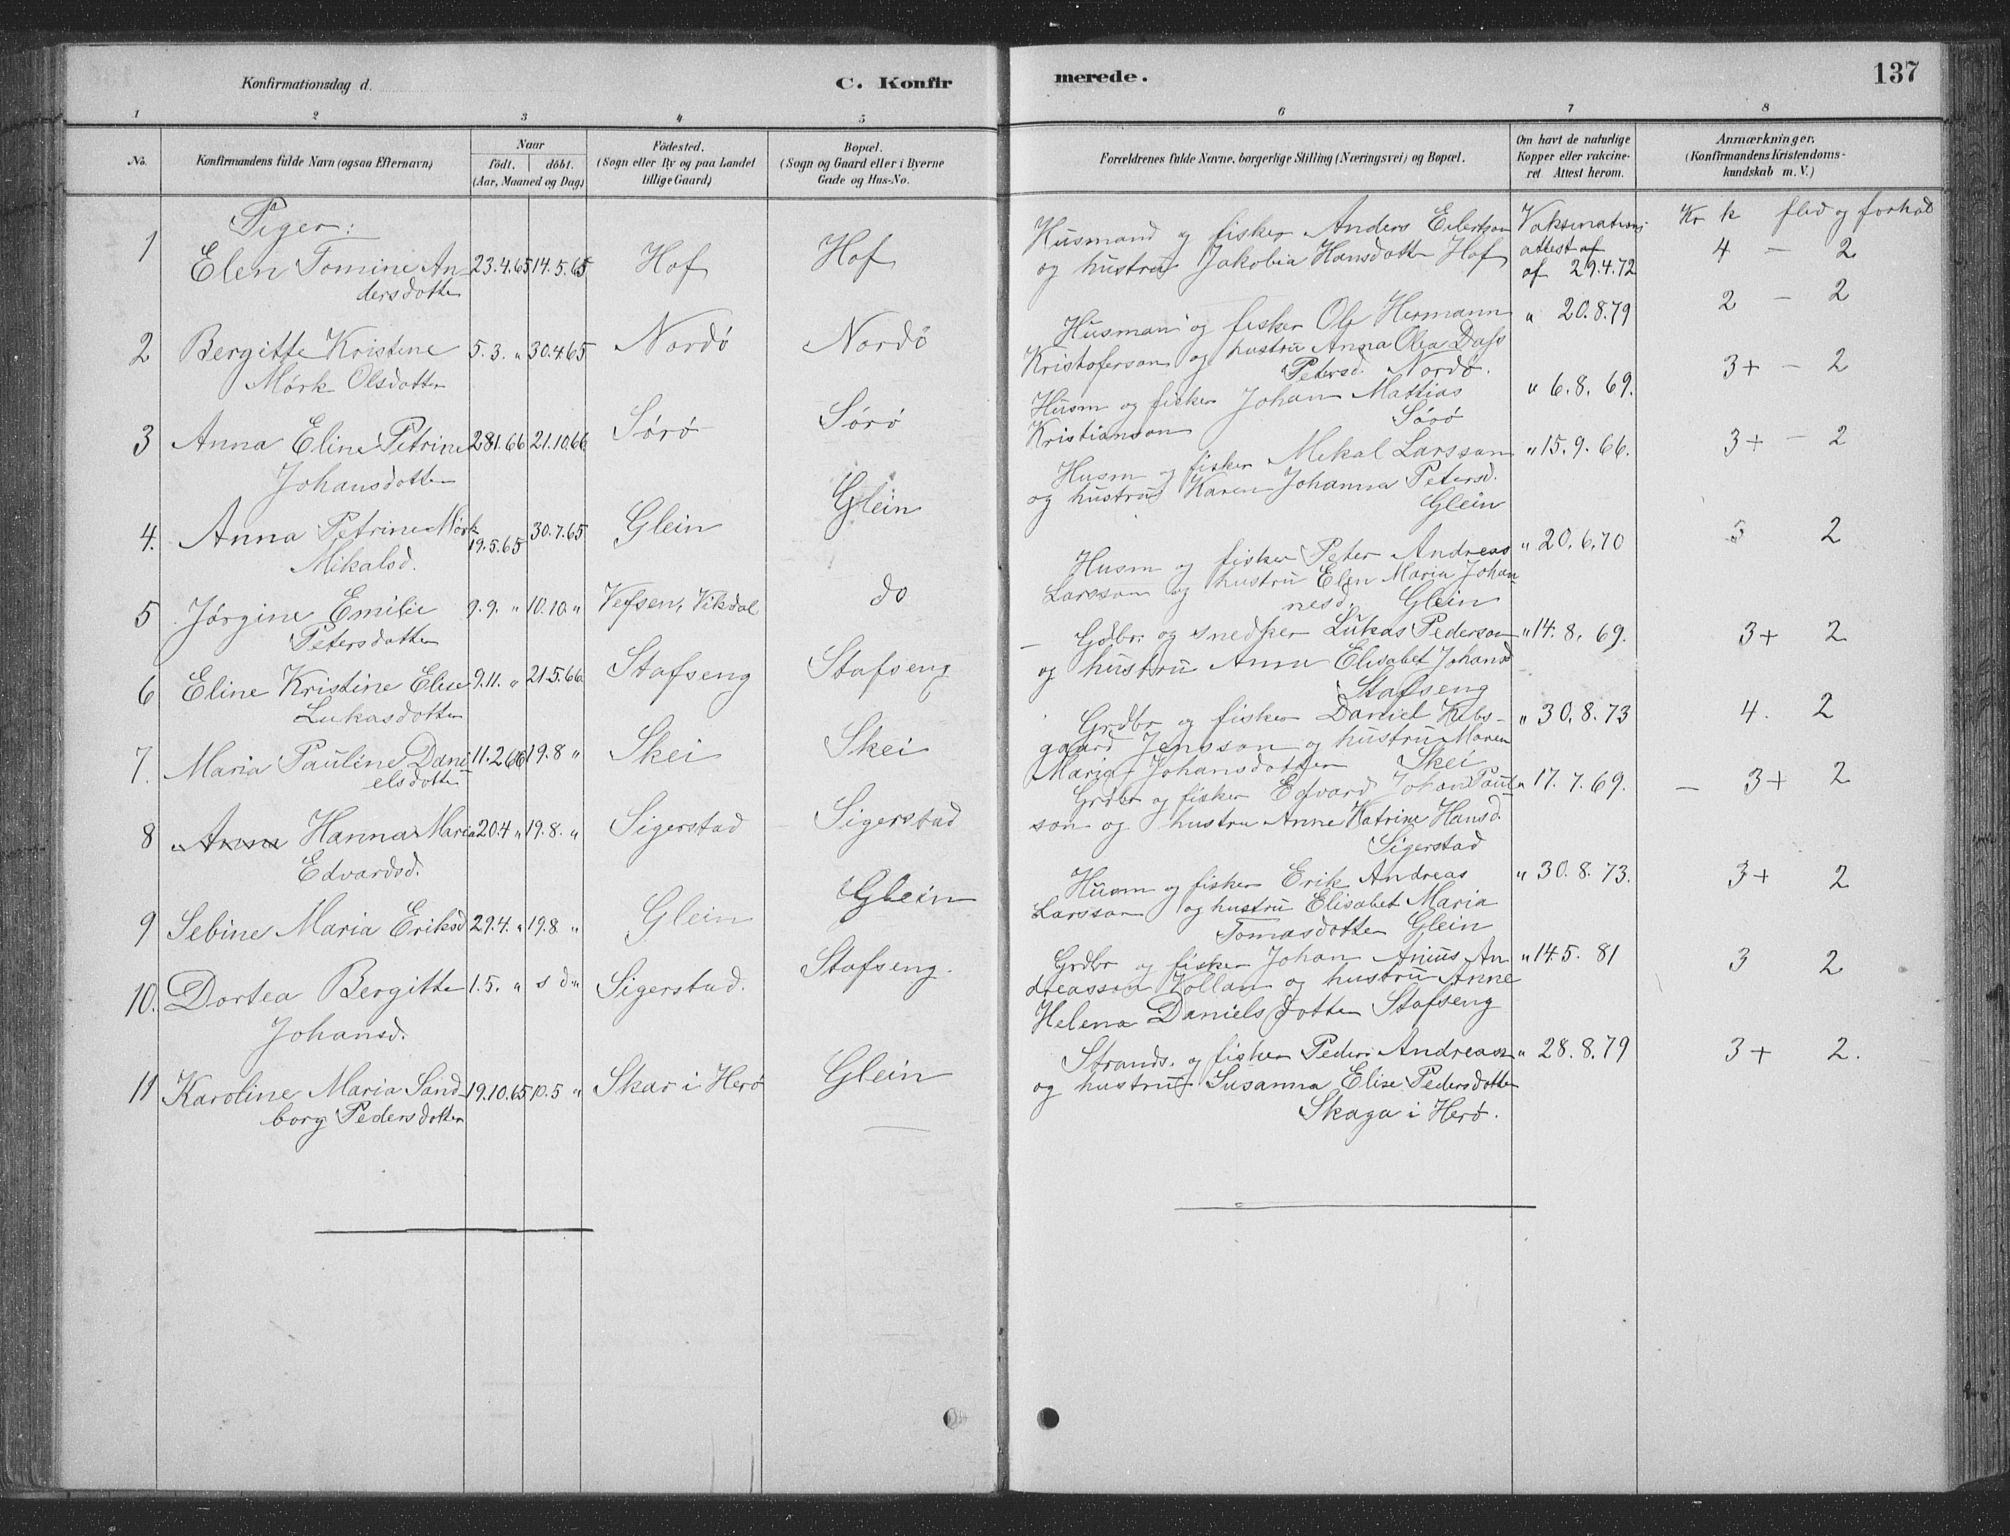 Konfirmationsdag d.
C. Konfir
merede.
137
1 2 3 4 5 6 7 8
No.
Konfirmandens fulde Navn (ogsaa Efternavn)
Naar
födt. döbt.
(Aar, Maaned og Dag)
Födested.
(Sogn eller By og paa Landet
tillige Gaard)
Bopæl.
(Sogn og Gaard eller i Byerne
Gade og Hus-No.
Forældrenes fulde Navne, borgerlige Stilling (Næringsvei) og Bopæl.
Om havt de naturlige
Kopper eller vakcine-
ret Attest herom.
Anmærkninger.
(Konfirmandens Kristendoms-
kundskab m. V.)
Piger:
Kr k flid og forhol
1 Elen Tomine An 23.4.65 14.5.65 Hof Hof
dersdotter
Husmand og fisker Anders Eilertson
og hustru Jakobia Hansdotter Hof
Vaksinations
attest af
af 29.4.72
4 - 2
2 Bergitte Kristine 5.3. " 30.4.65 Nordö Nordö
Mörk Olsdotter
Husman og fisker Ole Hermann
Kristoferson og hustru Anna Olea Dass
Petersd. Nordö.
" 20.8.79
2 - 2
3 Anna Eline Petrine 28.1.66 21.10.66 Sörö Sörö
Johansdotter
Husm og fisker Johan Mattias
Kristianson Sörö
" 6.8.69.
3+ - 2
4. Anna Petrine Mörk 19.5.65 30.7.65 Glein Glein
Mikalsd.
Husm og fisker Mikal Larsson
og hustru Karen Johanna Petersd.
Glein
" 15.9.66.
3+ - 2
5 Jörgine Emilie 9.9. " 10.10. " Vefsen, Vikdal do
Petersdotter
Husm og fisker Peter Andreas
Larsson og hustru Elen Maria Johan
nesd. Glein
" 20.6.70
3 2
6 Eline Kristine Elise 9.11. " 21.5.66 Stafseng Stafseng
Lukasdotter
Gdbr. og snedker Lukas Pederson
og hustru Anna Elisabet Johansd
Stafseng
" 14.8.69.
3+ 2
7. Maria Pauline Dani 11.2.66 19.8 " Skei Skei
elsdotter
Grdbr og fisker Daniel Kibs-
gaard Jensson og hustru Maren
Maria Johansdotter Skei
" 30.8.73
4. 2
8 Anna Hanna Maria 20.4 " 19.8. " Sigerstad Sigerstad
Edvardsd.
Grdbr og fisker Edvard Johan Paul
son og hustru Anne Katrine Hansd.
Sigerstad
" 17.7.69.
- 3+ 2
9 Sebine Maria Eriksd 29.4. " 19.8 " Glein Glein
Husm og fisker Erik Andreas
Larsson og hustru Elisabet Maria
Tomasdotter Glein
" 30.8.73.
3+ 2
10. Dortea Bergitte 1.5. " s d " Sigerstad. Stafseng.
Johansd.
Grdbr og fisker Johan Anius An
dreasson Kollan og hustru Anne
Helena Daniels dotter Stafseng
" 14.5.81
3 2
11 Karoline Maria Sand 19.10.65 10.5 " Skar i Herö Glein
borg Pedersdotter
Strands. og fisker Peder Andreass
og hustru Susanna Elise Pedersdotter
Skaga i Herö.
" 28.8.79
3+ 2.